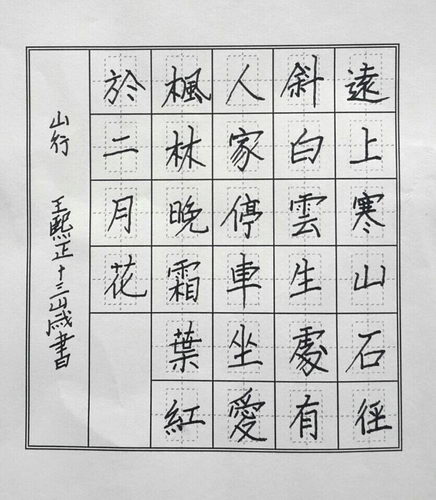 遠上寒山石徑
斜白雲生處有
人家停車坐愛
楓林晚霜葉紅
於二月花
山行 王熙正十三歲書